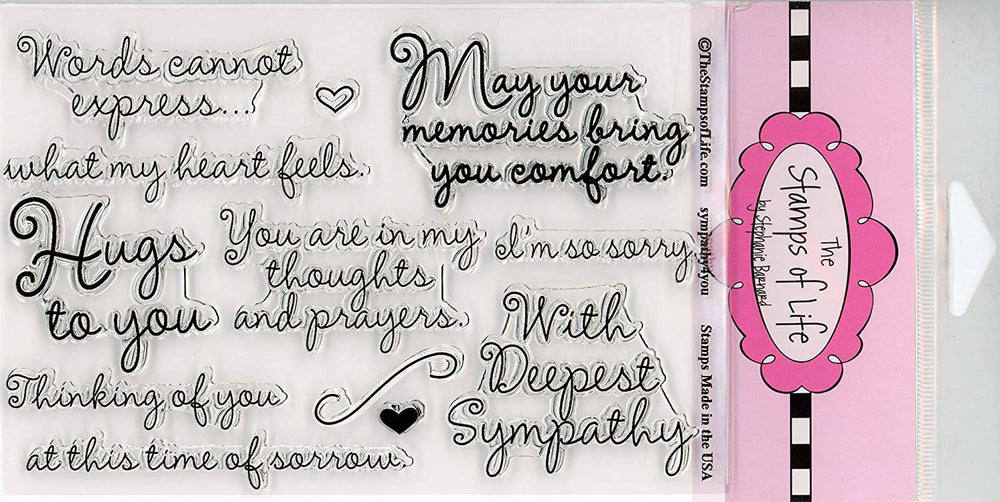 Words cannot
express...
what my heart feels.
May your
memories bring
you comfort.
Hugs
to you
You are in my
thoughts
and prayers.
I'm so sorry
With
Deepest
Sympathy
Thinking of you
at this time of sorrow.
©TheStampsofLife.com sympathy4you Stamps Made in the USA
The
Stamps of Life
by Stephanie Barnard